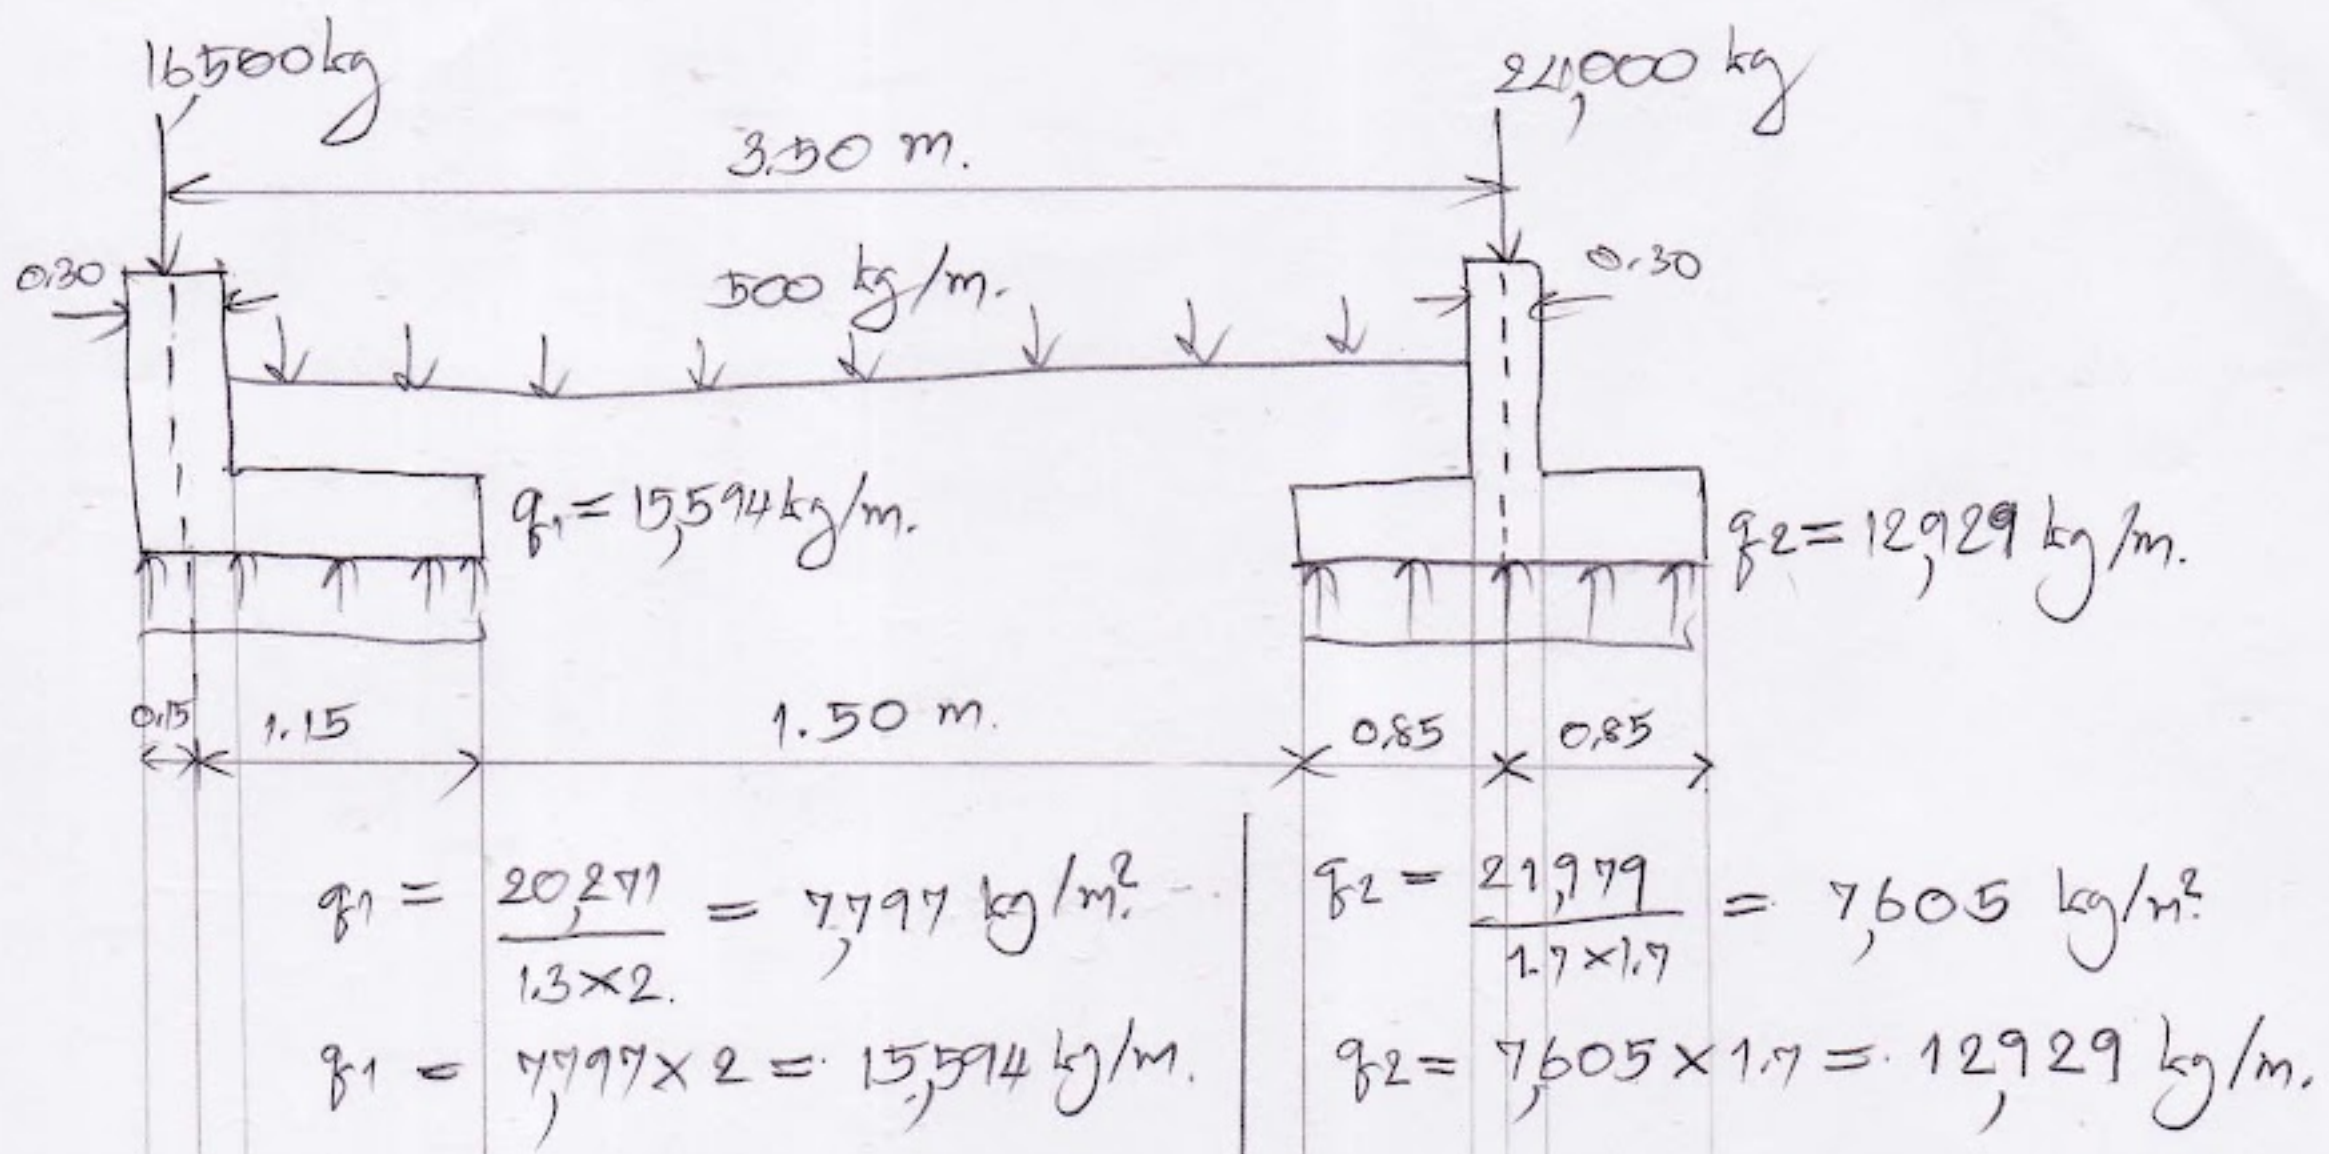 16,500 kg
24,000 kg
3.50 m.
0.30
500 kg/m.
0.30
q1 = 15,594 kg/m.
q2 = 12,929 kg/m.
0.15
1.15
1.50 m.
0.85
0.85
q1 = 20,271 / 1.3×2. = 7,797 kg/m².
q1 = 7,797 × 2 = 15,594 kg/m.
q2 = 21,979 / 1.7×1.7 = 7,605 kg/m².
q2 = 7,605 × 1.7 = 12,929 kg/m.